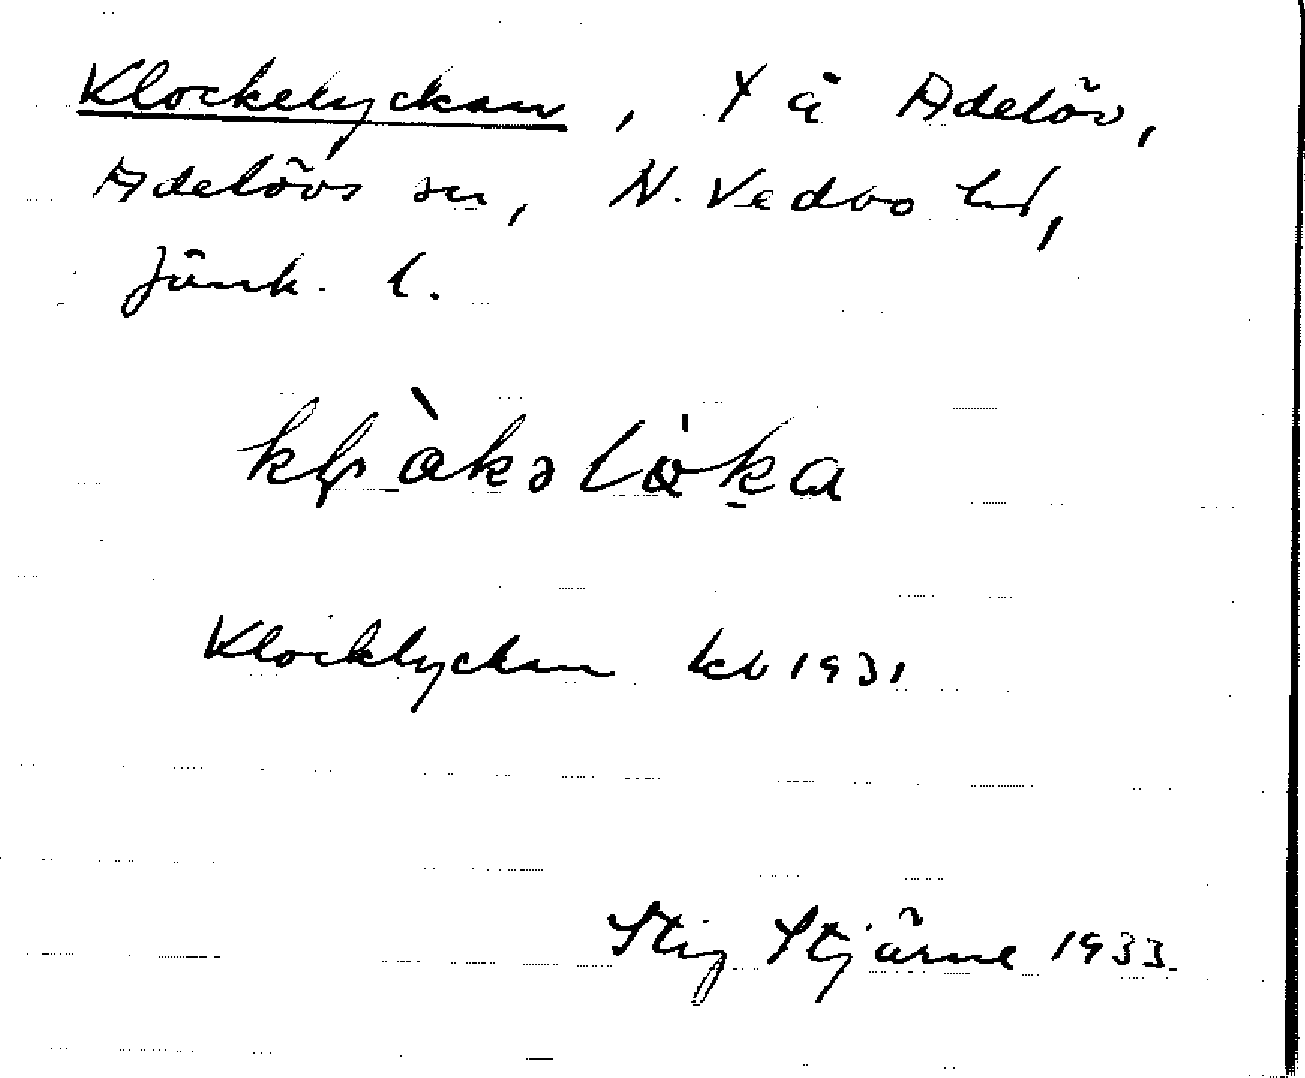 Klockelyckan, t å Adelöv,
Adelövs sn, N. Vedbo hd,
Jönk. l.
kḷòkəlöka
Klocklyckan kb 1931
Stig Stjärne 1933